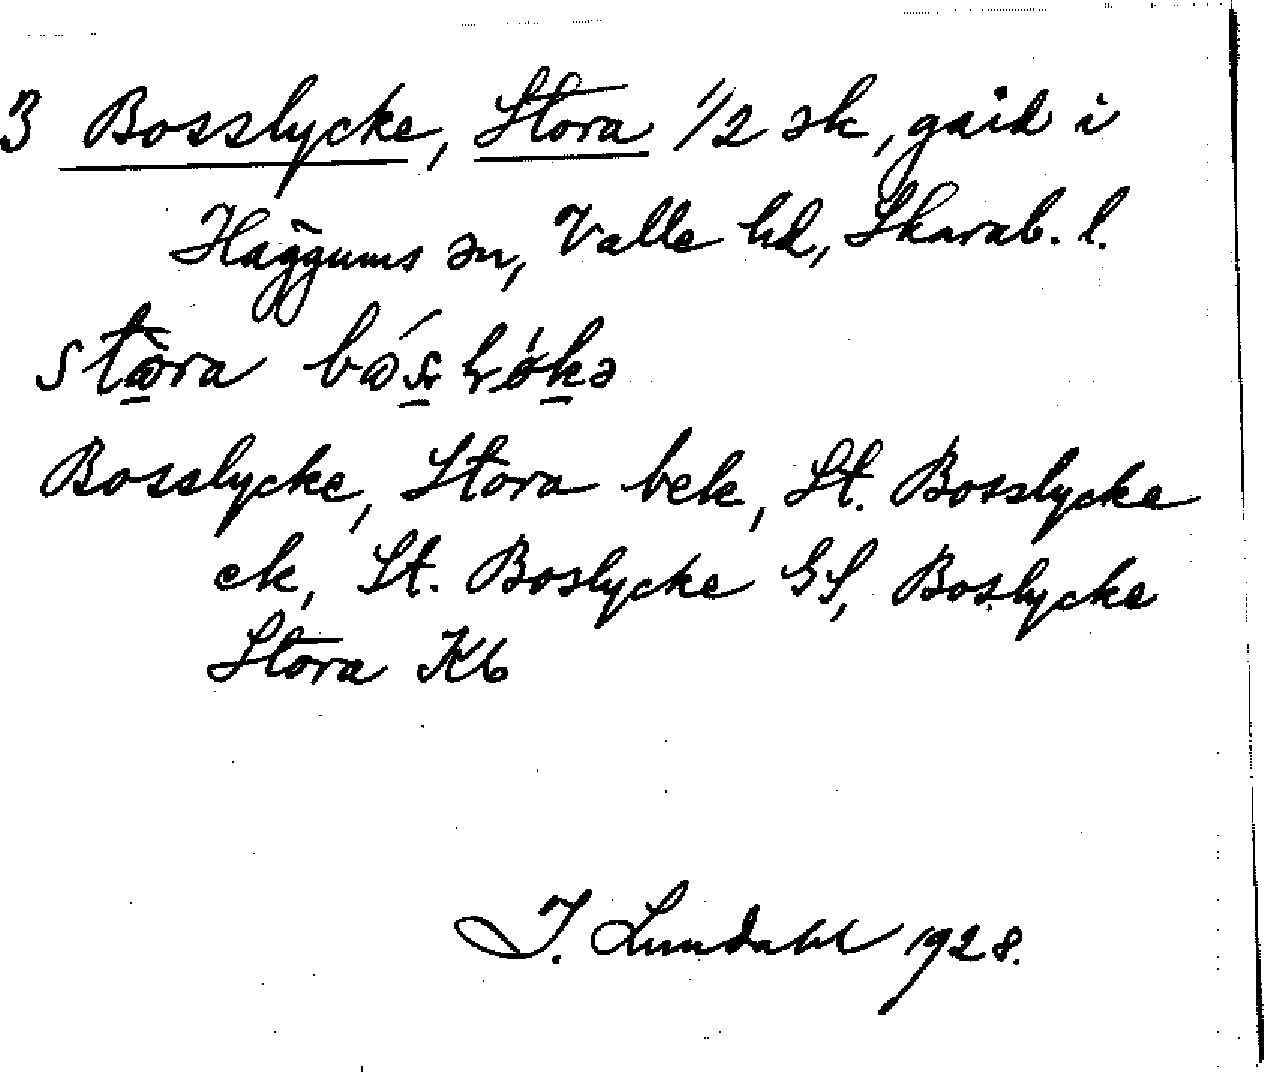 3 Bosslycke, Stora 1/2 sk, gård i
Häggums sn, Valle hd, Skarab. l.
Bosslycke, Stora bek, St. Bosslycke
ek, St. Boslycke GS, Boslycke
Stora Kb
I. Lundahl 1928.